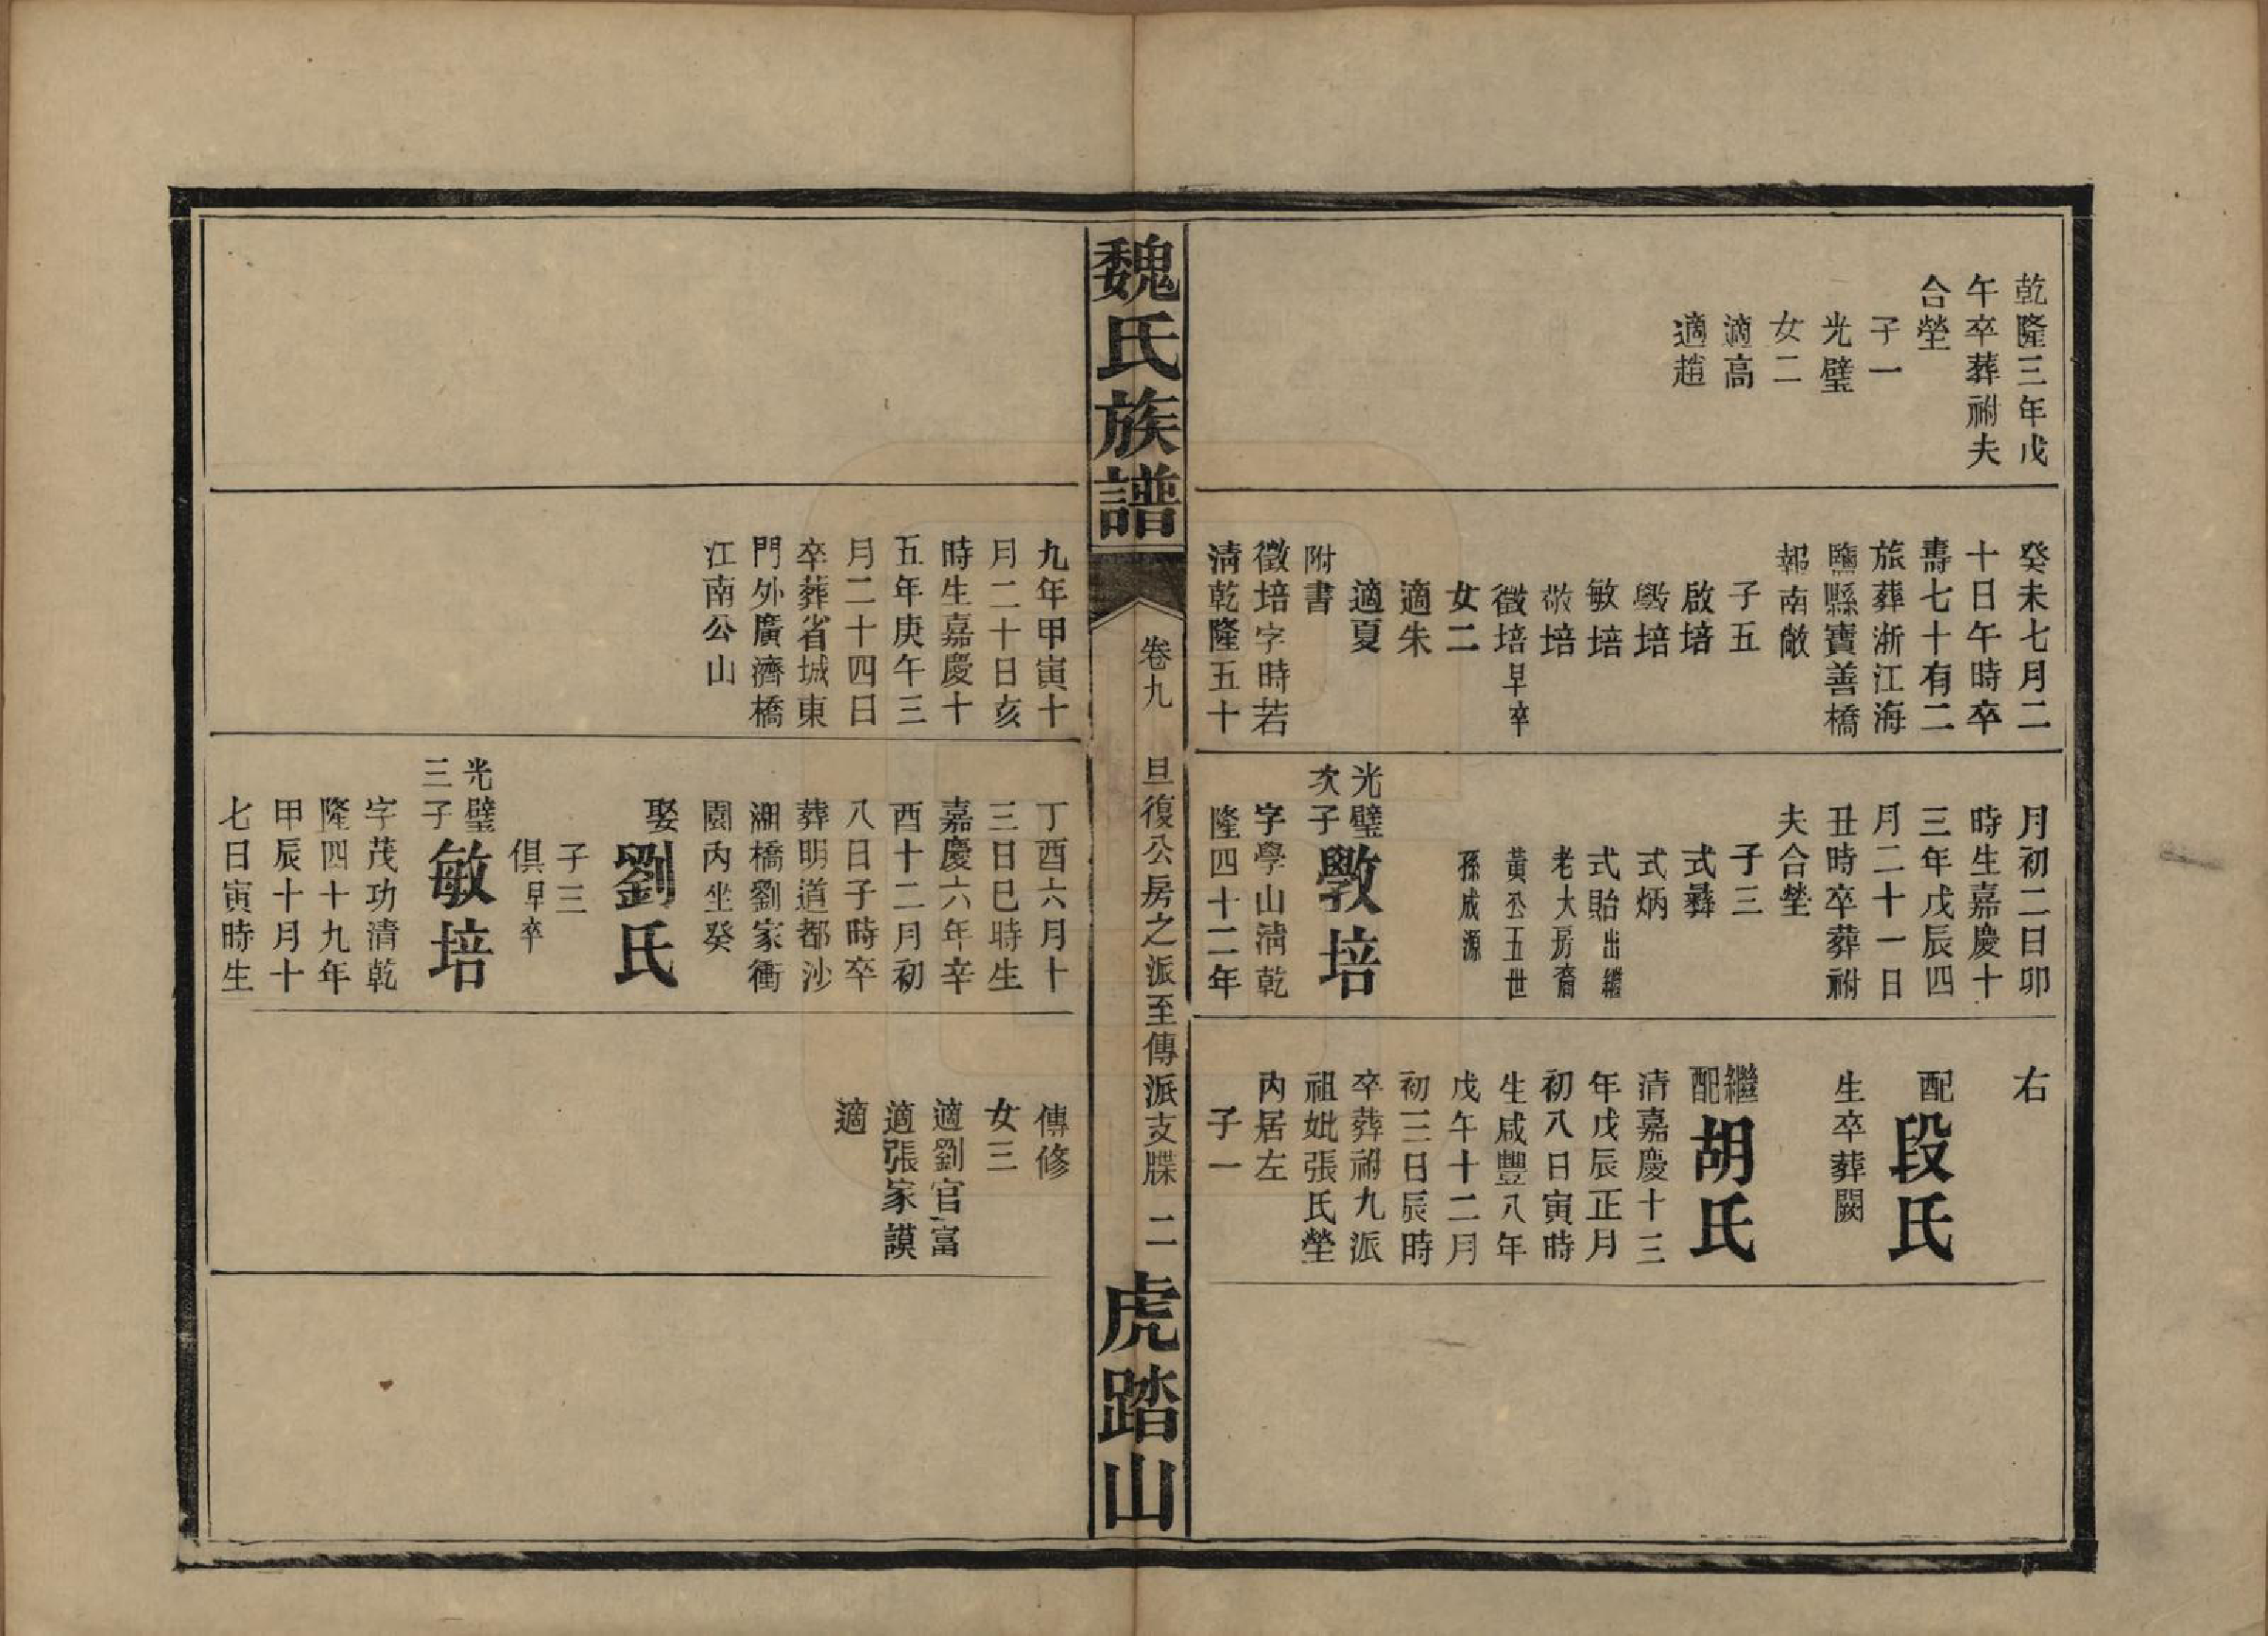 乾隆三年戊
午卒葬祔夫
合塋
子一
光璧
女二
適高
適趙
癸未七月二
十日午時卒
壽七十有二
旅葬浙江海
鹽縣寶善橋
報南敵
子五
啟培
斆培
敏培
敬培
徵培早卒
女二
適朱
適夏
附書
徵培字時若
清乾隆五十
月初二日卯
時生嘉慶十
三年戊辰四
月二十一日
丑時卒葬祔
夫合塋
子三
式彝
式炳
式貽出繼
老大房裔
黃公五世
孫成源
光璧
次子斆培
字學山清乾
隆四十二年
右
配段氏
生卒葬闕
繼配胡氏
清嘉慶十三
年戊辰正月
初八日寅時
生咸豐八年
戊午十二月
初三日辰時
卒葬祔九派
祖妣張氏塋
內居左
子一
魏氏族譜
卷九
旦復公房之派至傳派支牒
二
虎踏山
九年甲寅十
月二十日亥
時生嘉慶十
五年庚午三
月二十四日
卒葬省城東
門外廣濟橋
江南公山
丁酉六月十
三日巳時生
嘉慶六年辛
酉十二月初
八日子時卒
葬明道都沙
湘橋劉家衝
園內坐癸
娶劉氏
子三
俱早卒
光璧
三子敏培
字茂功清乾
隆四十九年
甲辰十月十
七日寅時生
傳修
女三
適劉官富
適張家謨
適